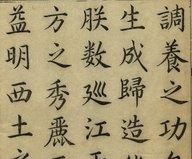 調養之功
生成歸造
朕数廵江
方之秀麗
益明西土之